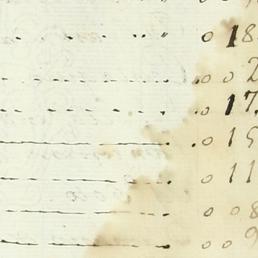 0 18
0 0 2
0 17
0 15
0 11
0 0 8
0 0 9